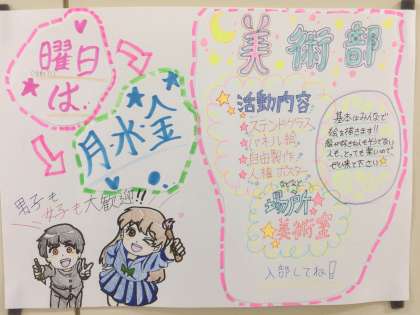 曜日
は
月・水・金
男子も
女子も大歓迎!!
美術部
活動内容
★ステンドグラス
★アキル絵
★自由製作
★人権ポスター
などなど
場所
★美術室
基本はみんなで
絵を描きます!!
人も、とっても楽しいので
ぜひ来て下さい☆
入部してね!